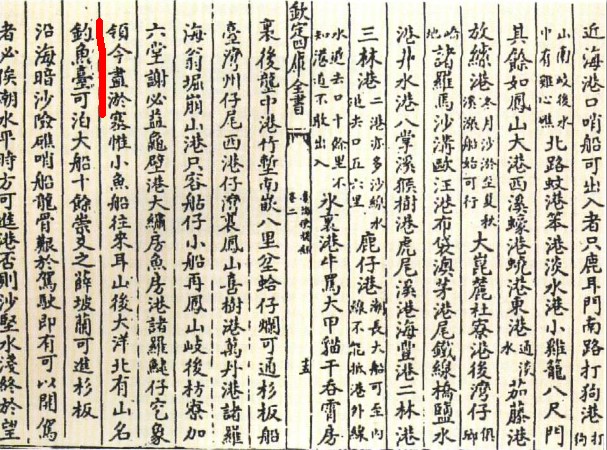 近海港口哨船可出入者只鹿耳門南路打狗港打狗
山南岐後水中有雞心礁北路蚊港笨港淡水港小雞籠八尺門
其餘如鳳山大港西溪蠔港蟯港東港通淡水茄藤港
放䌇港冬月沙淤至夏秋溪漲船始可行大崑麓社寮港後灣仔俱瑯
嶠地諸羅馬沙溝歐汪港布袋澳茅港尾鐵線橋鹽水
港井水港八掌溪猴樹港虎尾溪港海豐港二林港
三林港二港亦多沙線水退去口五六里鹿仔港潮長大船可至內線不能抵港外線
水退去口十餘里不知港道不敢出入水裏港牛罵大甲貓干吞霄房
欽定四庫全書
臺海使槎錄
卷二
十五
裏後壠中港竹塹南嵌八里坌蛤仔爛可通杉板船
臺灣州仔尾西港仔灣裏鳳山喜樹港萬丹港諸羅
海翁堀崩山港只容船仔小船再鳳山岐後枋寮加
六堂謝必益龜壁港大繡房魚房港諸羅鯓仔穵象
領今盡淤塞惟小魚船往來耳山後大洋北有山名
釣魚臺可泊大船十餘崇爻之薛坡蘭可進杉板
沿海暗沙險礁哨船龍骨艱於駕駛即有可以開駕
者必俟潮水平時方可進港否則沙堅水淺終於望